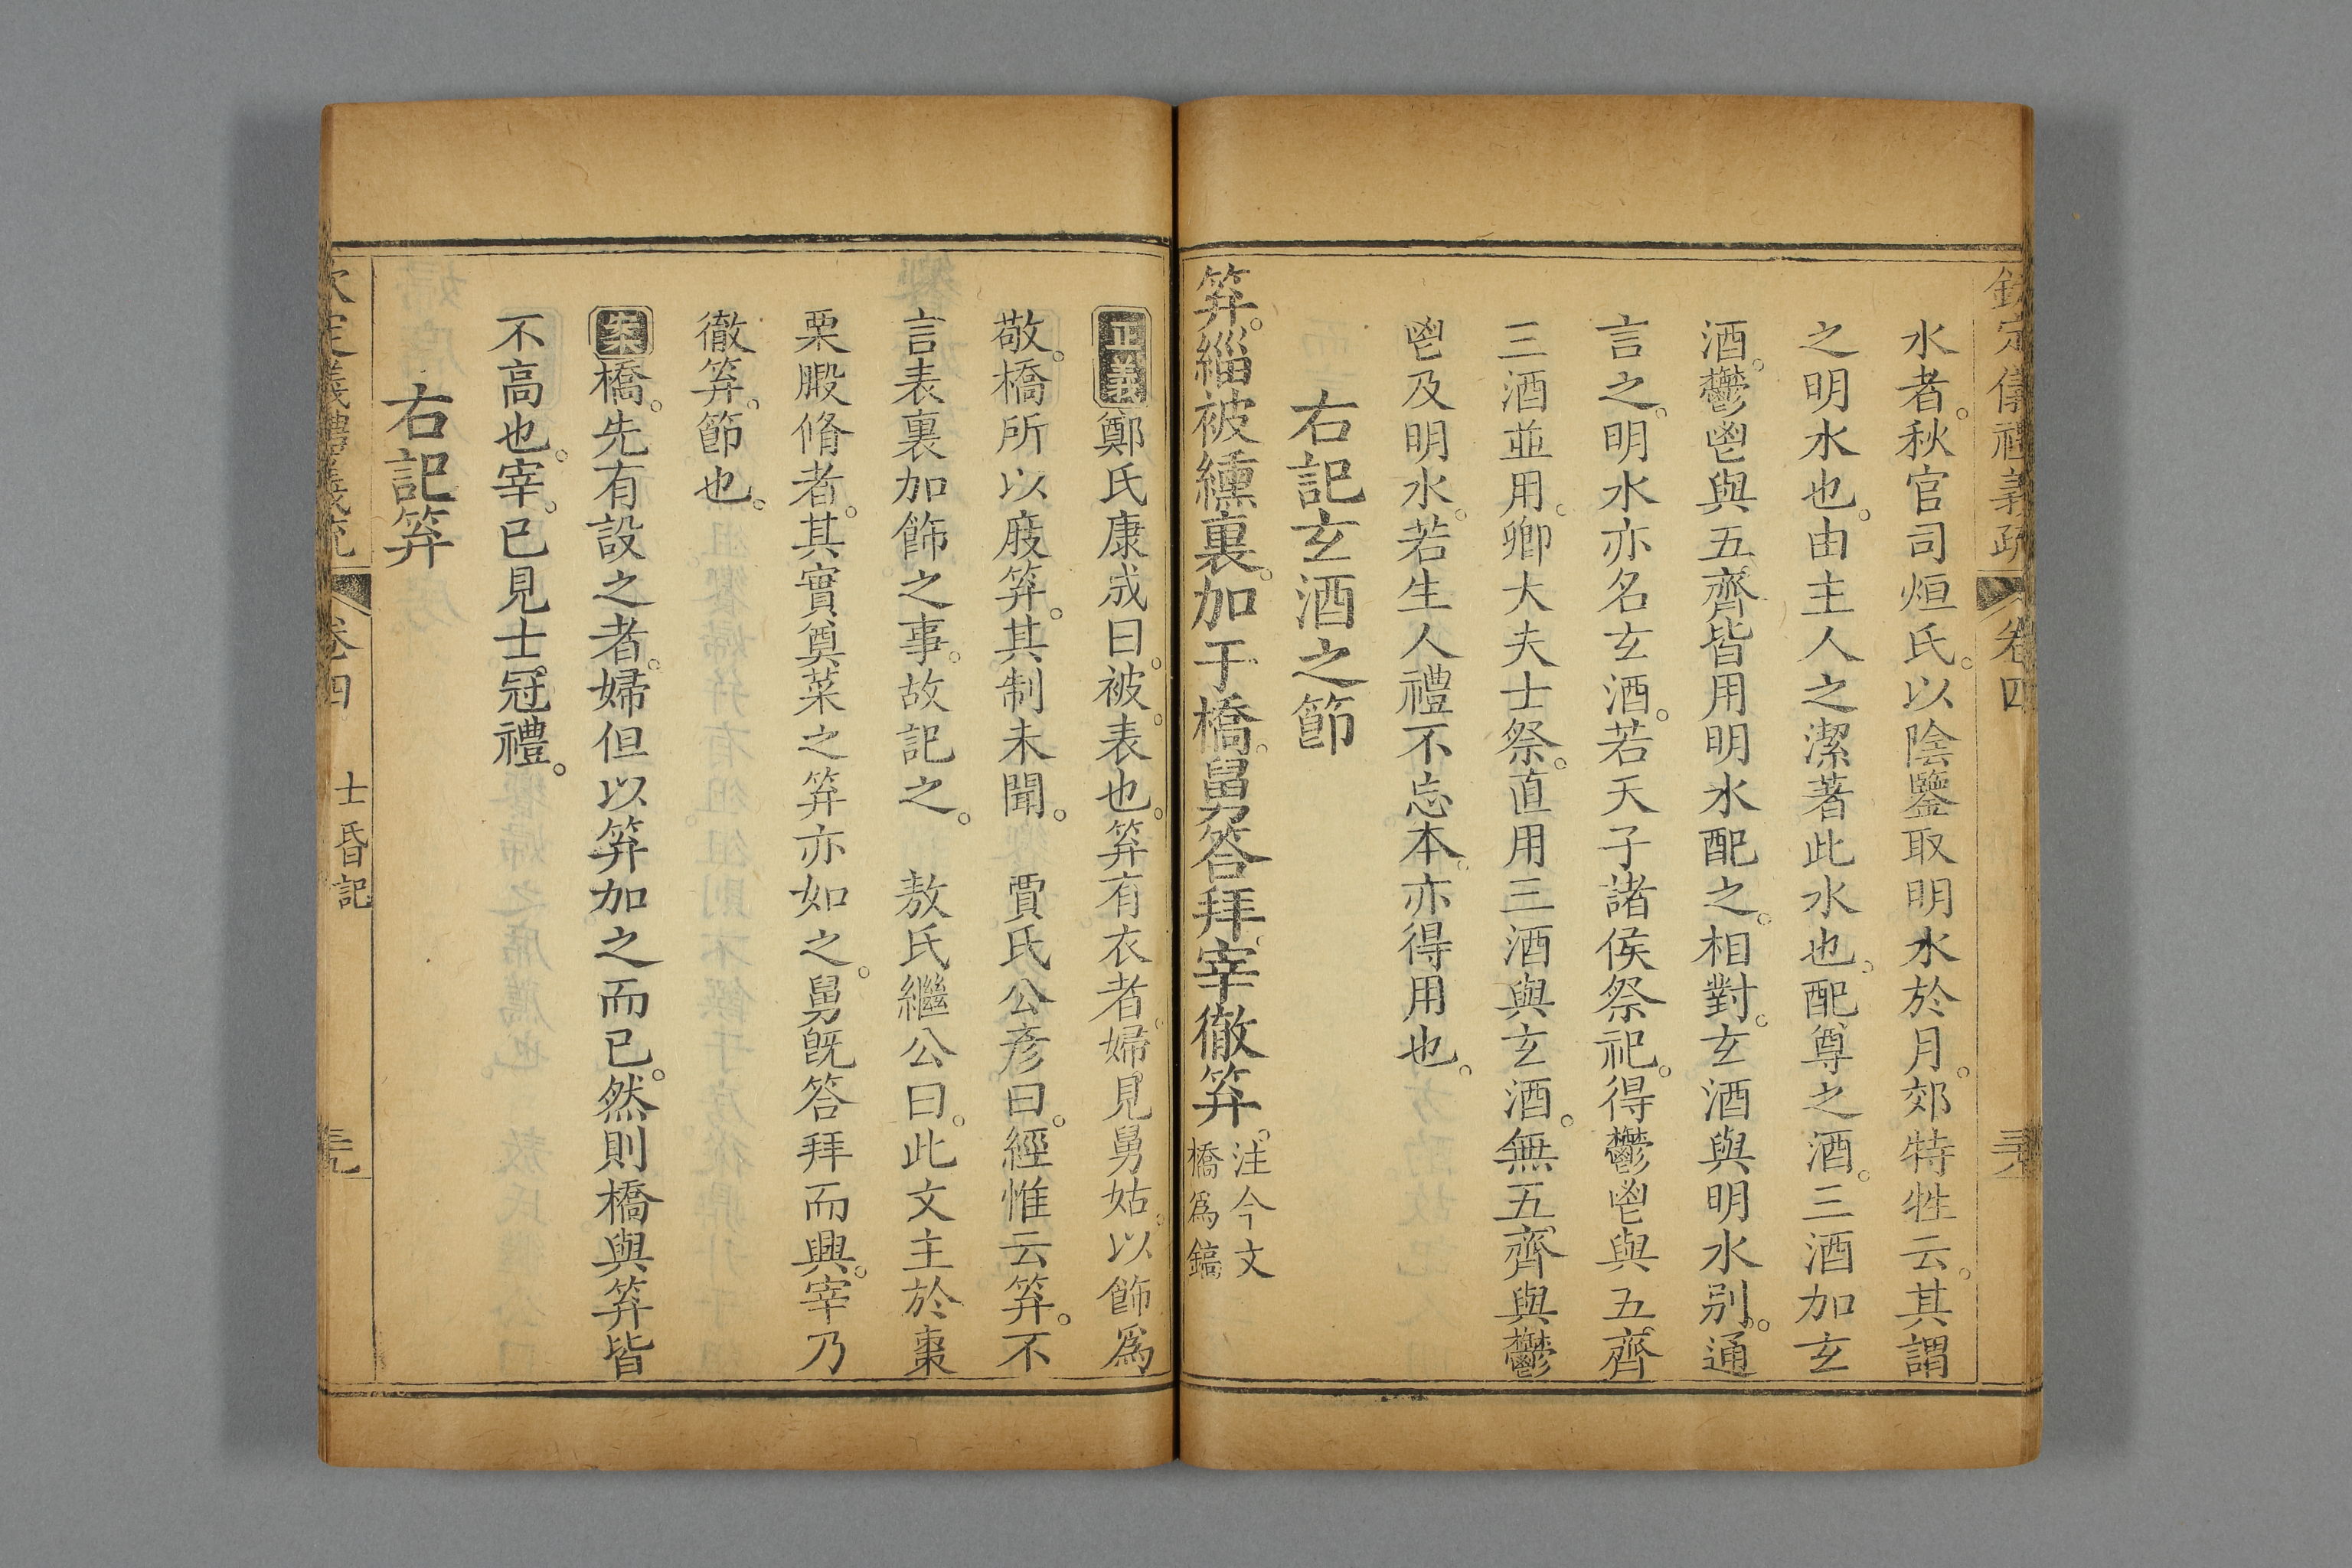 欽定儀禮義疏 卷四
水者。秋官司烜氏。以陰鑒取明水於月。郊特牲云。其謂
之明水也。由主人之潔著此水也。配尊之酒。三酒加玄
酒。鬱鬯與五齊皆用明水配之。相對。玄酒與明水別。通
言之。明水亦名玄酒。若天子諸侯祭祀。得鬱鬯與五齊
三酒並用。卿大夫士祭。直用三酒與玄酒。無五齊與鬱
鬯及明水。若生人禮不忘本。亦得用也。
右記玄酒之節
笲。緇被纁裏。加于橋。舅答拜。宰徹笲。注今文
橋爲鎬
正義鄭氏康成曰。被。表也。笲有衣者。婦見舅姑。以飾爲
敬。橋所以庪笲。其制未聞。 賈氏公彥曰。經惟云笲。不
言表裏加飾之事。故記之。 敖氏繼公曰。此文主於棗
栗腶脩者。其實奠菜之笲亦如之。舅旣答拜而興。宰乃
徹笲。節也。
案橋。先有設之者。婦但以笲加之而已。然則橋與笲皆
不高也。宰。已見士冠禮。
右記笲
欽定儀禮義疏 卷四 士昏記